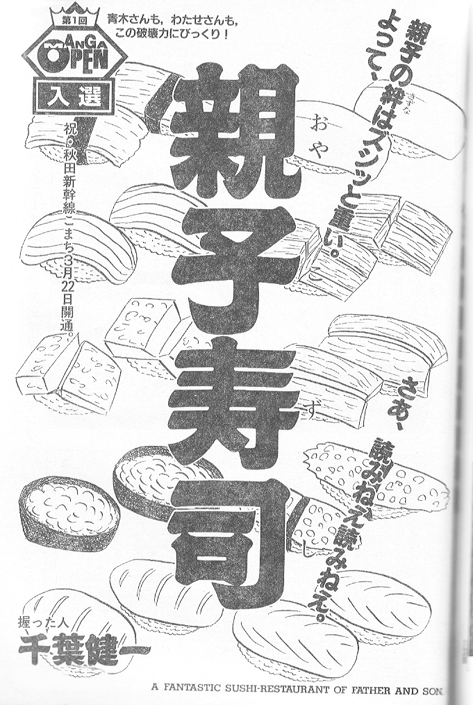 第1回
MANGA
OPEN
入選
青木さんも，わたせさんも，
この破壊力にびっくり！
親子の絆はズシッと重い。
きずな
よって、
祝・秋田新幹線こまち3月22日開通。
親子寿司
おやこずし
さあ、
読みねえ読みねえ。
握った人
千葉健一
A FANTASTIC SUSHI-RESTAURANT OF FATHER AND SON